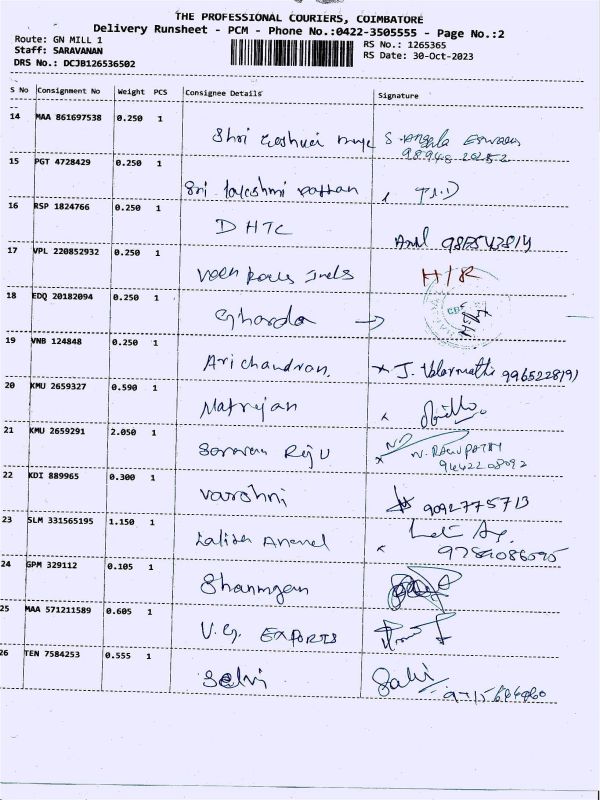 THE PROFESSIONAL COURIERS, COIMBATORE
Delivery Runsheet - PCM - Phone No.:0422-3505555 - Page No.:2
Route: GN MILL 1
RS No.: 1265365
Staff: SARAVANAN
RS Date: 30-Oct-2023
DRS No.: DCJB126536502
S No Consignment No Weight PCS Consignee Details Signature
14 MAA 861697538 0.250 1
Shri
15 PGT 4728429 0.250 1
Sri
16 RSP 1824766 0.250 1
DHTC
17 VPL 220852932 0.250 1
H/R
18 EDQ 20182094 0.250 1
Gharda
19 VNB 124848 0.250 1
Arichandran. J. Valarmathi 9965228191
20 KMU 2659327 0.590 1
Natrajan
21 KMU 2659291 2.050 1
N. RAGUPATHY
9442208092
22 KDI 889965 0.300 1
Varshni 9092775713
23 SLM 331565195 1.150 1
9789086095
24 GPM 329112 0.105 1
Shanmgam
25 MAA 571211589 0.605 1
V.G. EXPORTS
26 TEN 7584253 0.555 1
Selvi